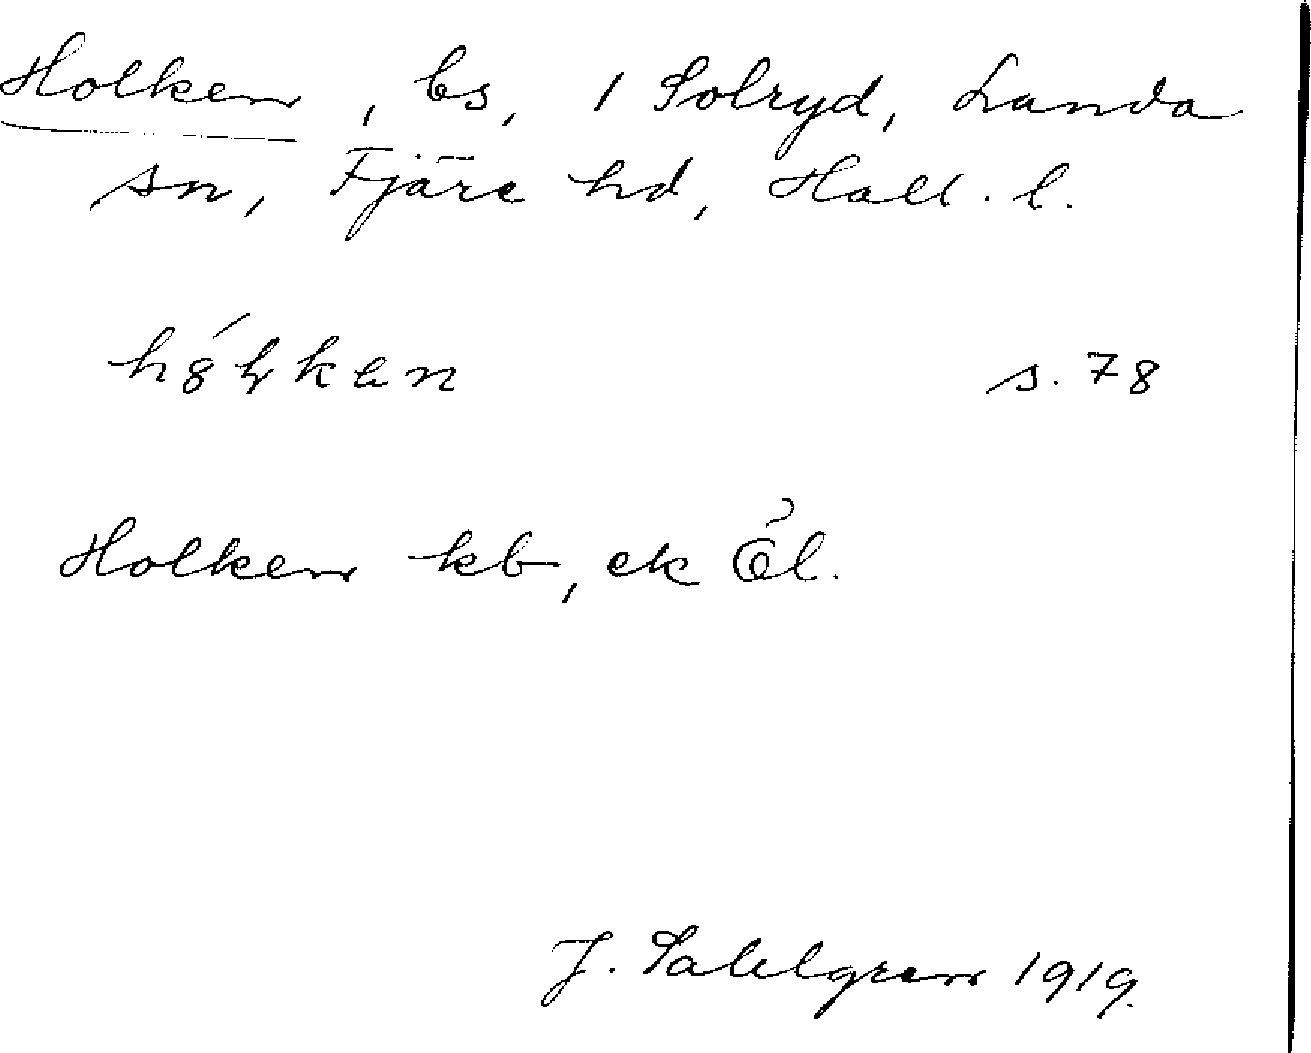 Holken, bs, 1 Solryd, Landa
sn, Fjäre hd, Hall. l.
s. 78
Holken kb, ek Öl.
J. Sahlgren 1919.